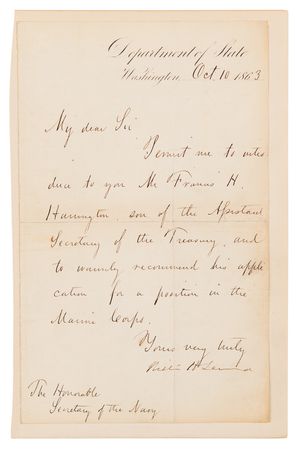 Department of State
Washington, Oct 10 1863
My dear Sir
Permit me to intro
duce to you Mr Francis H.
Harrington, son of the Assistant
Secretary of the Treasury, and
to warmly recommend his appli
cation for a position in the
Marine Corps.
Yours very truly
The Honorable
Secretary of the Navy